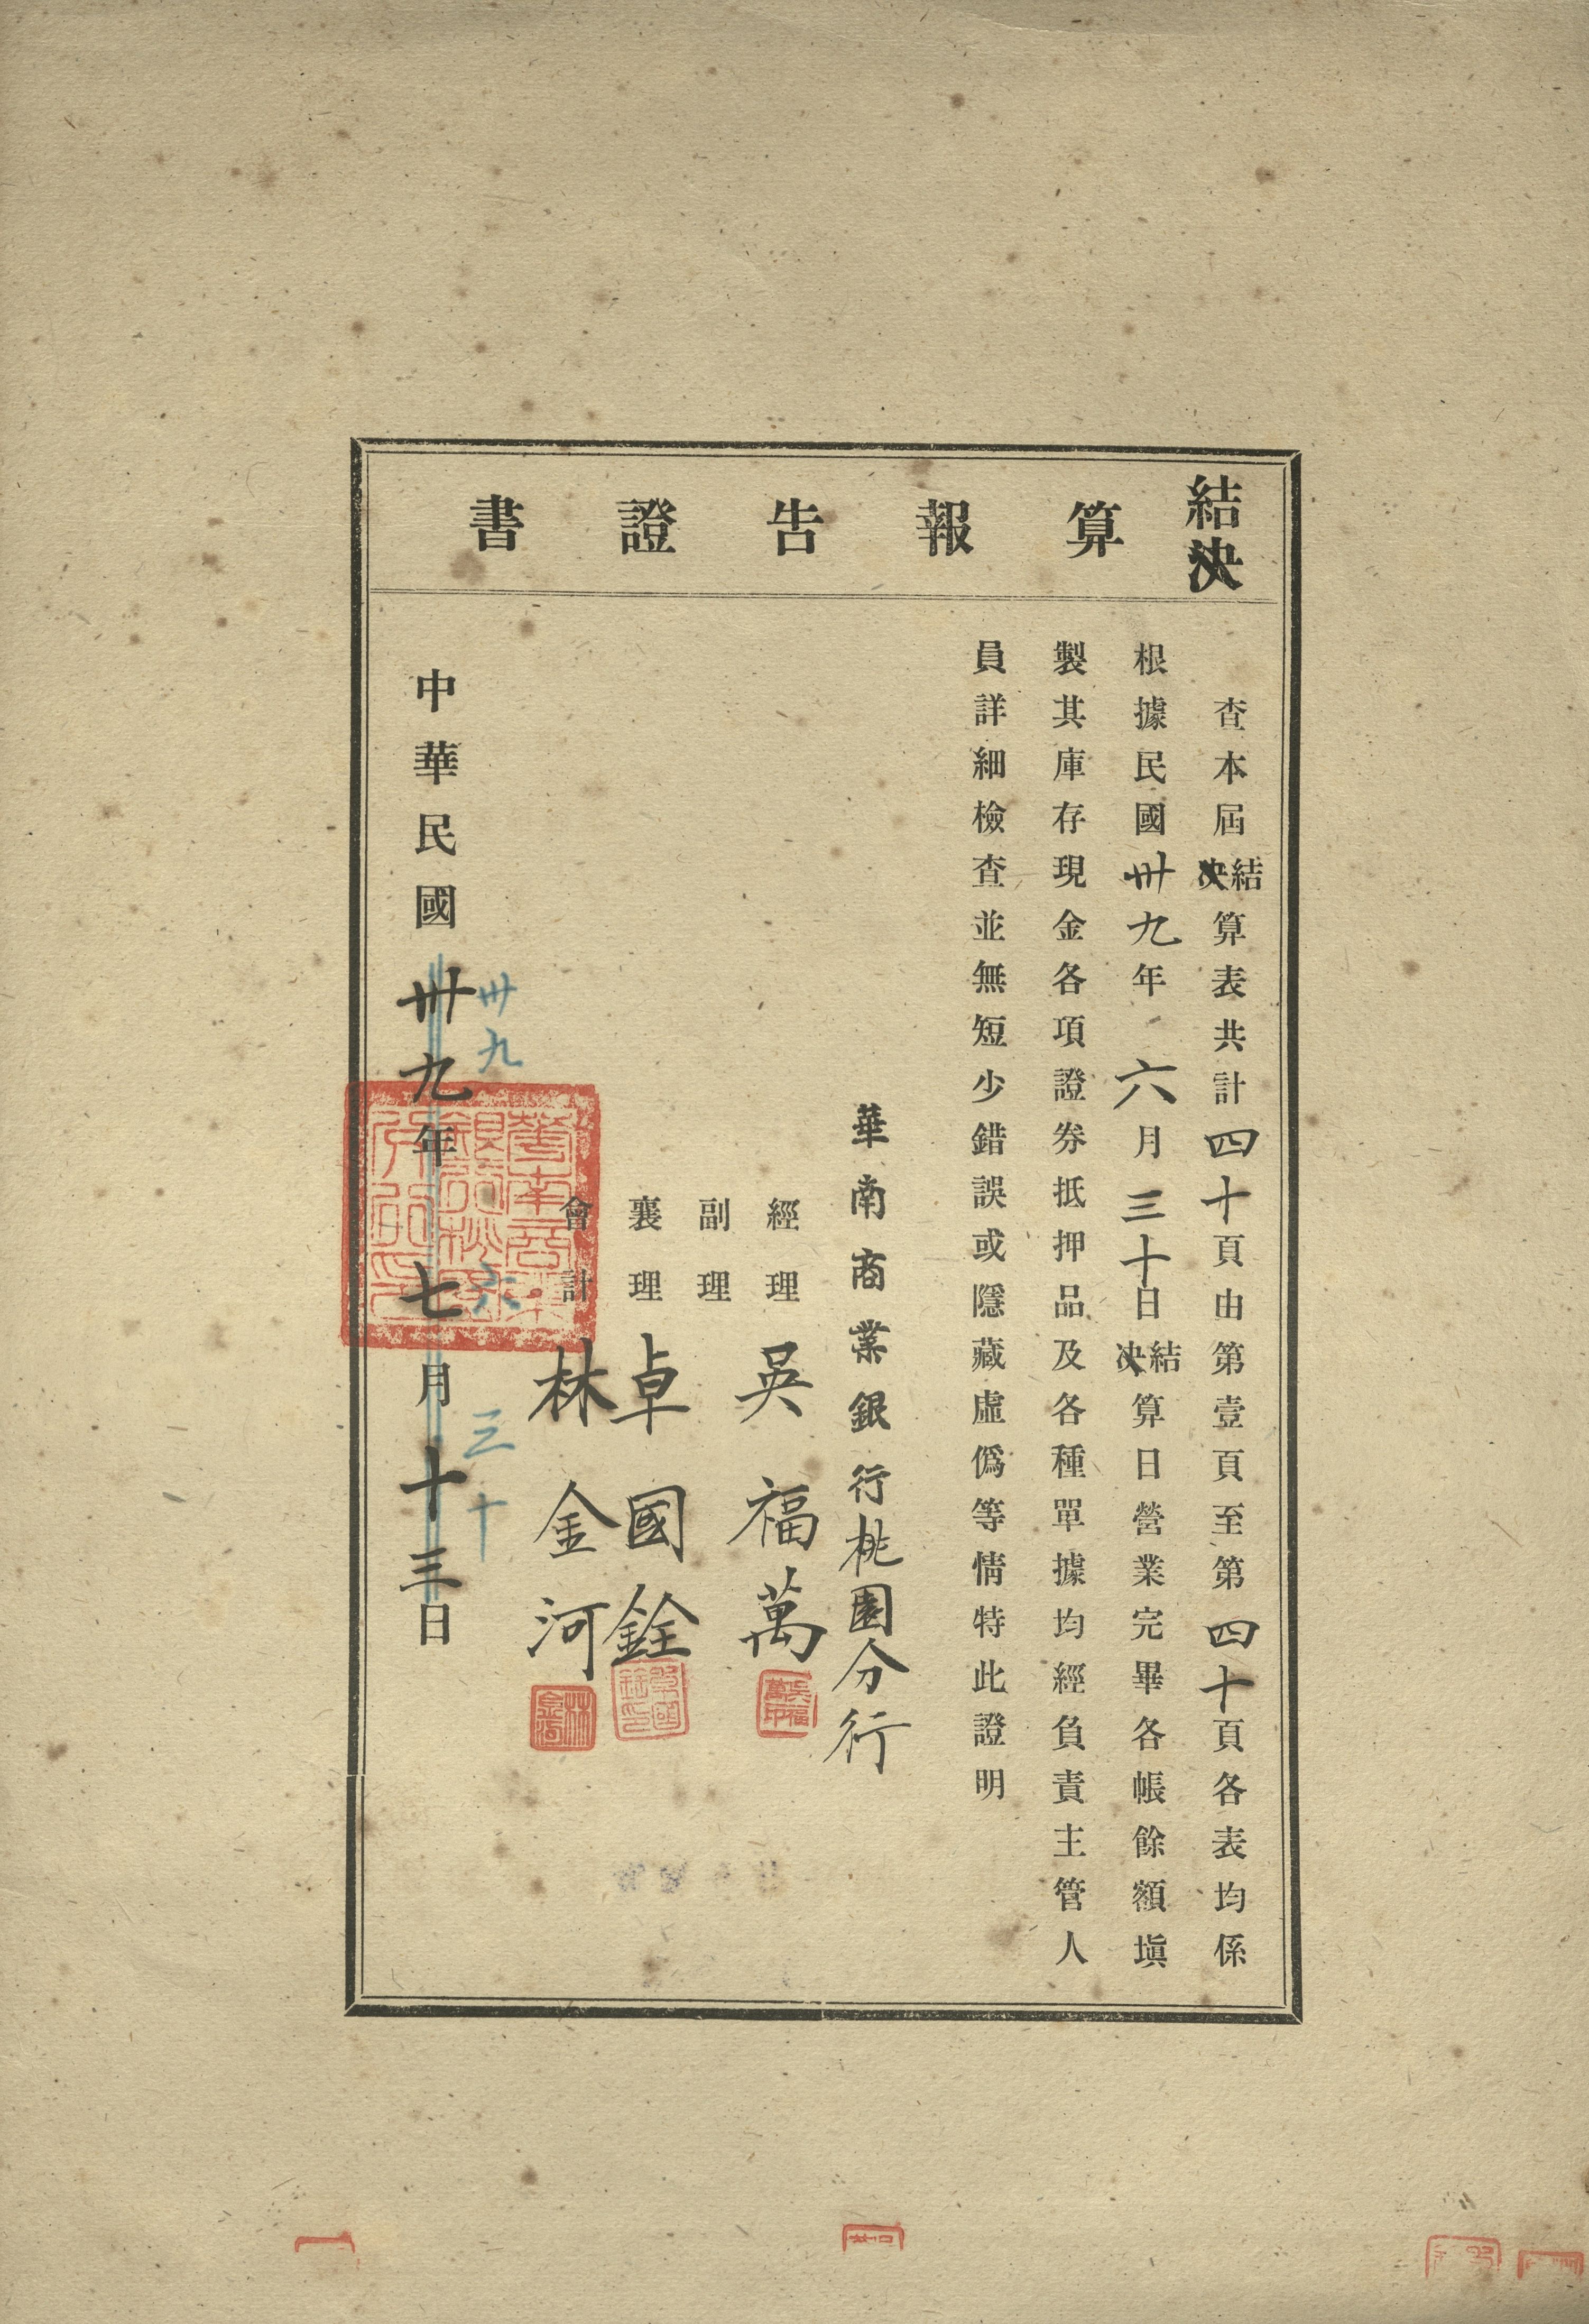 結決算報告證書
查本屆結決算表共計四十頁由第壹頁至第四十頁各表均係
根據民國卅九年六月三十日結決算日營業完畢各帳餘額塡
製其庫存現金各項證券抵押品及各種單據均經負責主管人
員詳細檢查並無短少錯誤或隱藏虛僞等情特此證明
華南商業銀行桃園分行
經理 吳福萬
吳福萬印
副理
襄理 卓國銓
卓國銓印
會計 林金河
林金河
卅九 六 三十
中華民國卅九年七月十三日
華南商業銀行桃園分行印